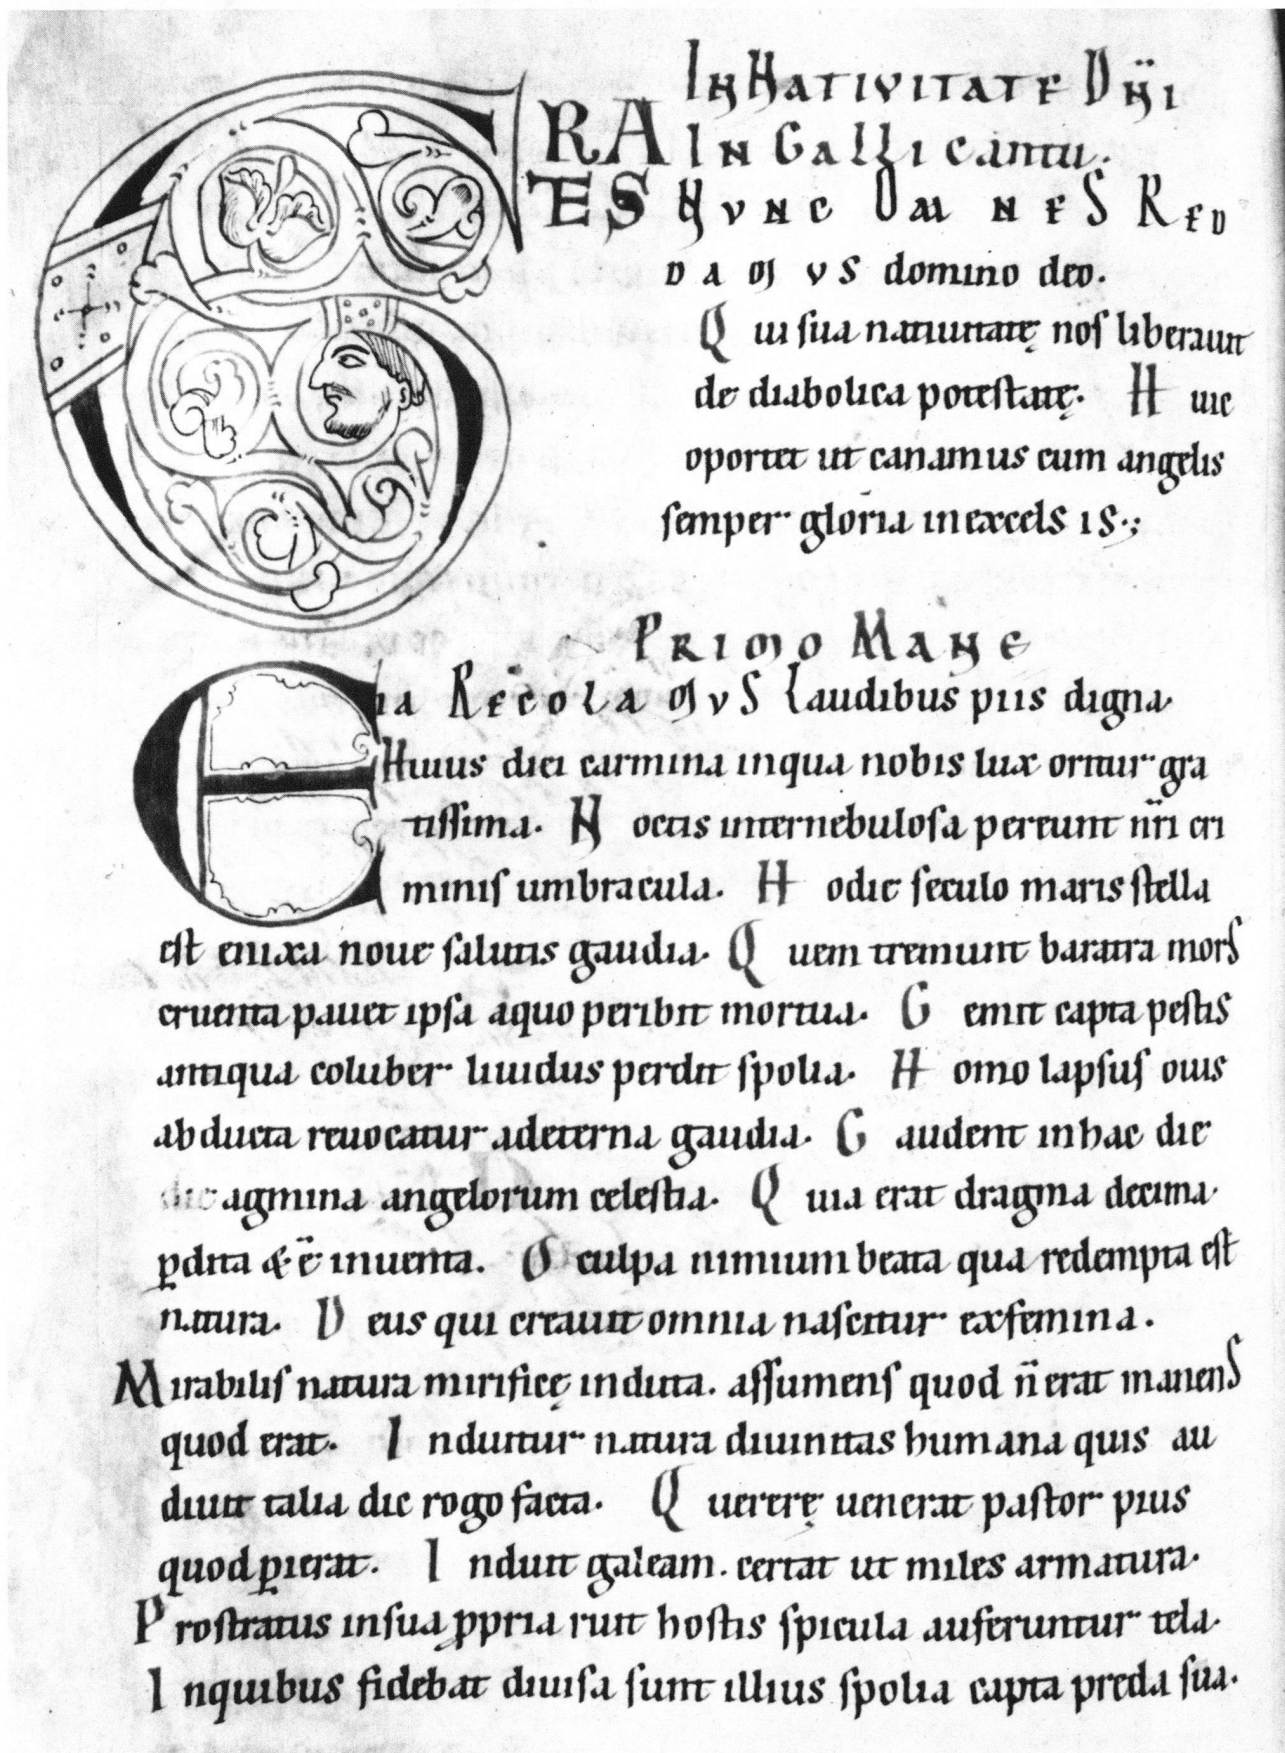 IN NATIVITATE DÑI
GRA IN GALLI cantu.
TES NVNC OMNES RED
DAMVS domino deo.
Qui sua natiuitatę nos liberauit
de diabolica potestatę. Huic
oportet ut canamus cum angelis
semper gloria in excelsis.,
PRIMO MANE
Eia RECOLAMVS laudibus piis digna.
Huius diei carmina in qua nobis lux oritur gra
tissima. Noctis inter nebulosa pereunt nr̄i cri
minis umbracula. Hodie seculo maris stella
est enixa noue salutis gaudia. Quem tremunt baratra mors
cruenta pauet ipsa a quo peribit mortua. Gemit capta pestis
antiqua coluber liuidus perdit spolia. Homo lapsus ouis
abducta reuocatur ad eterna gaudia. Gaudent in hac die
die agmina angelorum celestia. Quia erat dragma decima.
ꝑdita & ē inuenta. O culpa nimium beata qua redempta est
natura. Deus qui creauit omnia nascitur ex femina.
Mirabilis natura mirificę induta. assumens quod n̄ erat manens
quod erat. Induitur natura diuinitas humana quis au
diuit talia dic rogo facta. Quererę uenerat pastor pius
quod ꝑierat. Induit galeam. certat ut miles armatura.
Prostratus in sua ꝓpria ruit hostis spicula auferuntur tela.
In quibus fidebat diuisa sunt illius spolia capta preda sua.